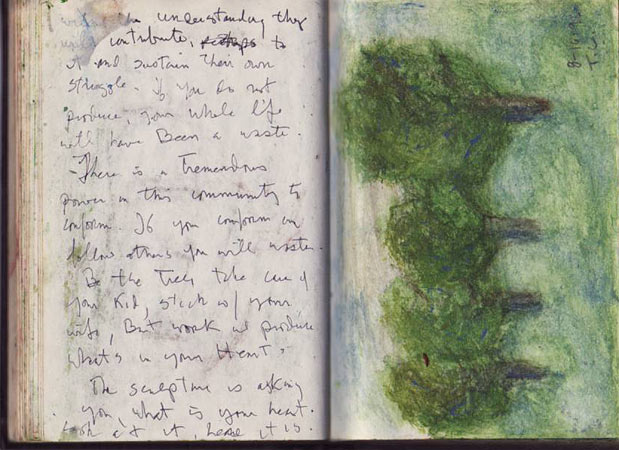 the understanding they
contribute, perhaps to
it and sustain their own
struggle. if you do not
produce, your whole life
will have Been a waste.
- There is a Tremendous
power in this community to
conform. If you conform or
follow others you will
Be the Trees take care of
your Kid, stick w/ your
wife, But work and produce
what's in your Heart.
The sculpture is asking
you, what is your heart.
Look at it, here it is.